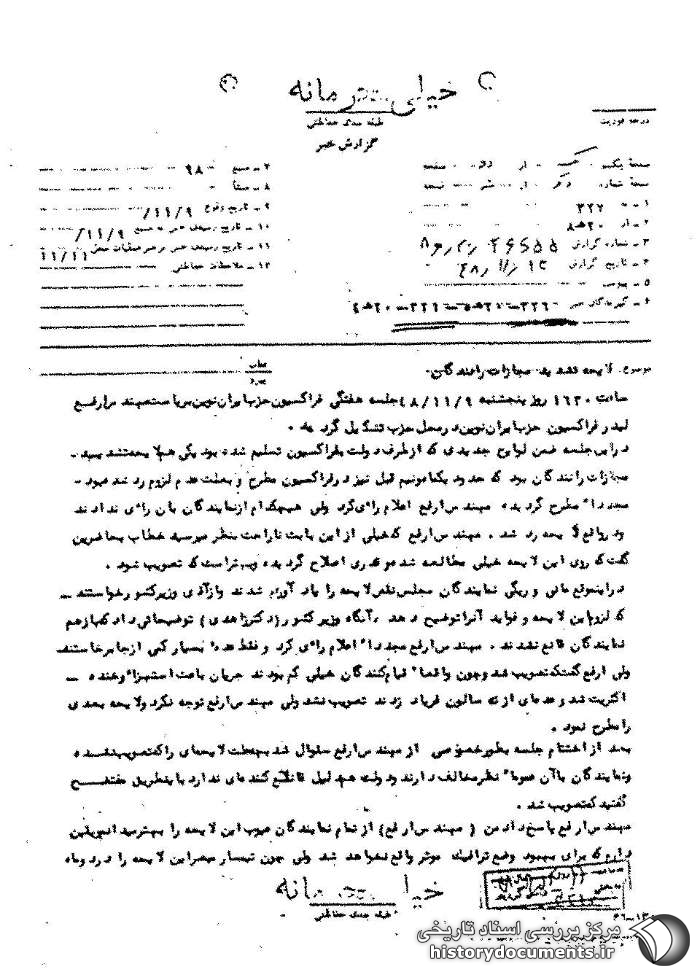 خیلی محرمانه
طبقه بندی حفاظتی
گزارش خبر
درجه فوریت
صفحه یکم از دو صفحه
نسخه شماره از نسخه
۱ - به ۳۲۲
۲ - از ۲۰ ه‍ ۸
۳ - شماره گزارش
۴ - تاریخ گزارش ۴۸/۱۱/۱۳
۵ - پیوست
۶ - گیرندگان خبر
۷ - منبع ۹۸
۸ - منشأ
۹ - تاریخ وقوع ۱۱/۹/
۱۰ - تاریخ رسیدن خبر به منبع ۱۱/۹/
۱۱ - تاریخ رسیدن خبر به رهبر عملیات محلی ۱۱/۱۱
۱۲ - ملاحظات حفاظتی
موضوع. لایحه تشدید مجازات رانندگان.
ساعت ۱۶۳۰ روز پنجشنبه ۴۸/۱۱/۹ جلسه هفتگی فراکسیون حزب ایران نوین بریاست مهندس ارفع
لیدر فراکسیون حزب ایران نوین در محل حزب تشکیل گردید.
در این جلسه ضمن لوایح جدیدی که از طرف دولت بفراکسیون تسلیم شده بود یکی هم لایحه تشدید
مجازات رانندگان بود که حدود یکماه و نیم قبل نیز در فراکسیون مطرح و بعلت عدم لزوم رد شده بود
مجدداً مطرح گردید مهندس ارفع اعلام رای کرد ولی هیچکدام از نمایندگان بآن رای ندادند
و در واقع لایحه رد شد. مهندس ارفع که خیلی از این بابت ناراحت بنظر میرسید خطاب بحاضرین
گفت که روی این لایحه خیلی مطالعه شده و قدری اصلاح گردیده و بهتر است که تصویب شود.
در اینموقع مانی و ریگی نمایندگان مجلس نقص لایحه را یادآور شدند و از آقای وزیر کشور خواستند
که لزوم این لایحه و فواید آنرا توضیح دهد. آنگاه وزیر کشور (دکتر زاهدی) توضیحاتی داد که باز هم
نمایندگان قانع نشدند. مهندس ارفع مجدداً اعلام رای کرد و فقط عده بسیار کمی از جا برخاستند
ولی ارفع گفت که تصویب شد و چون واقعاً قیام کنندگان خیلی کم بودند جریان باعث استهزاء و خنده
اکثریت شد و عده‌ای از ته سالن فریاد زدند تصویب نشد ولی مهندس ارفع توجه نکرد و لایحه بعدی
را مطرح نمود.
بعد از اختتام جلسه بطور خصوصی از مهندس ارفع سئوال شد بچه علت لایحه‌ای را که تصویب نشده
و نمایندگان با آن عموماً نظر مخالف دارند و دولت هم دلیل قانع کننده‌ای ندارد با ینطریق مفتضح
گفتید که تصویب شد.
مهندس ارفع پاسخ داد من (مهندس ارفع) از تمام نمایندگان عیوب این لایحه را بهتر میدانم و یقین
دارم که برای بهبود وضع ترافیک موثر واقع نخواهد شد ولی چون تیمسار مبصر این لایحه را در دو ماه
خیلی محرمانه
طبقه بندی حفاظتی
مرکز بررسی اسناد تاریخی
historydocuments.ir